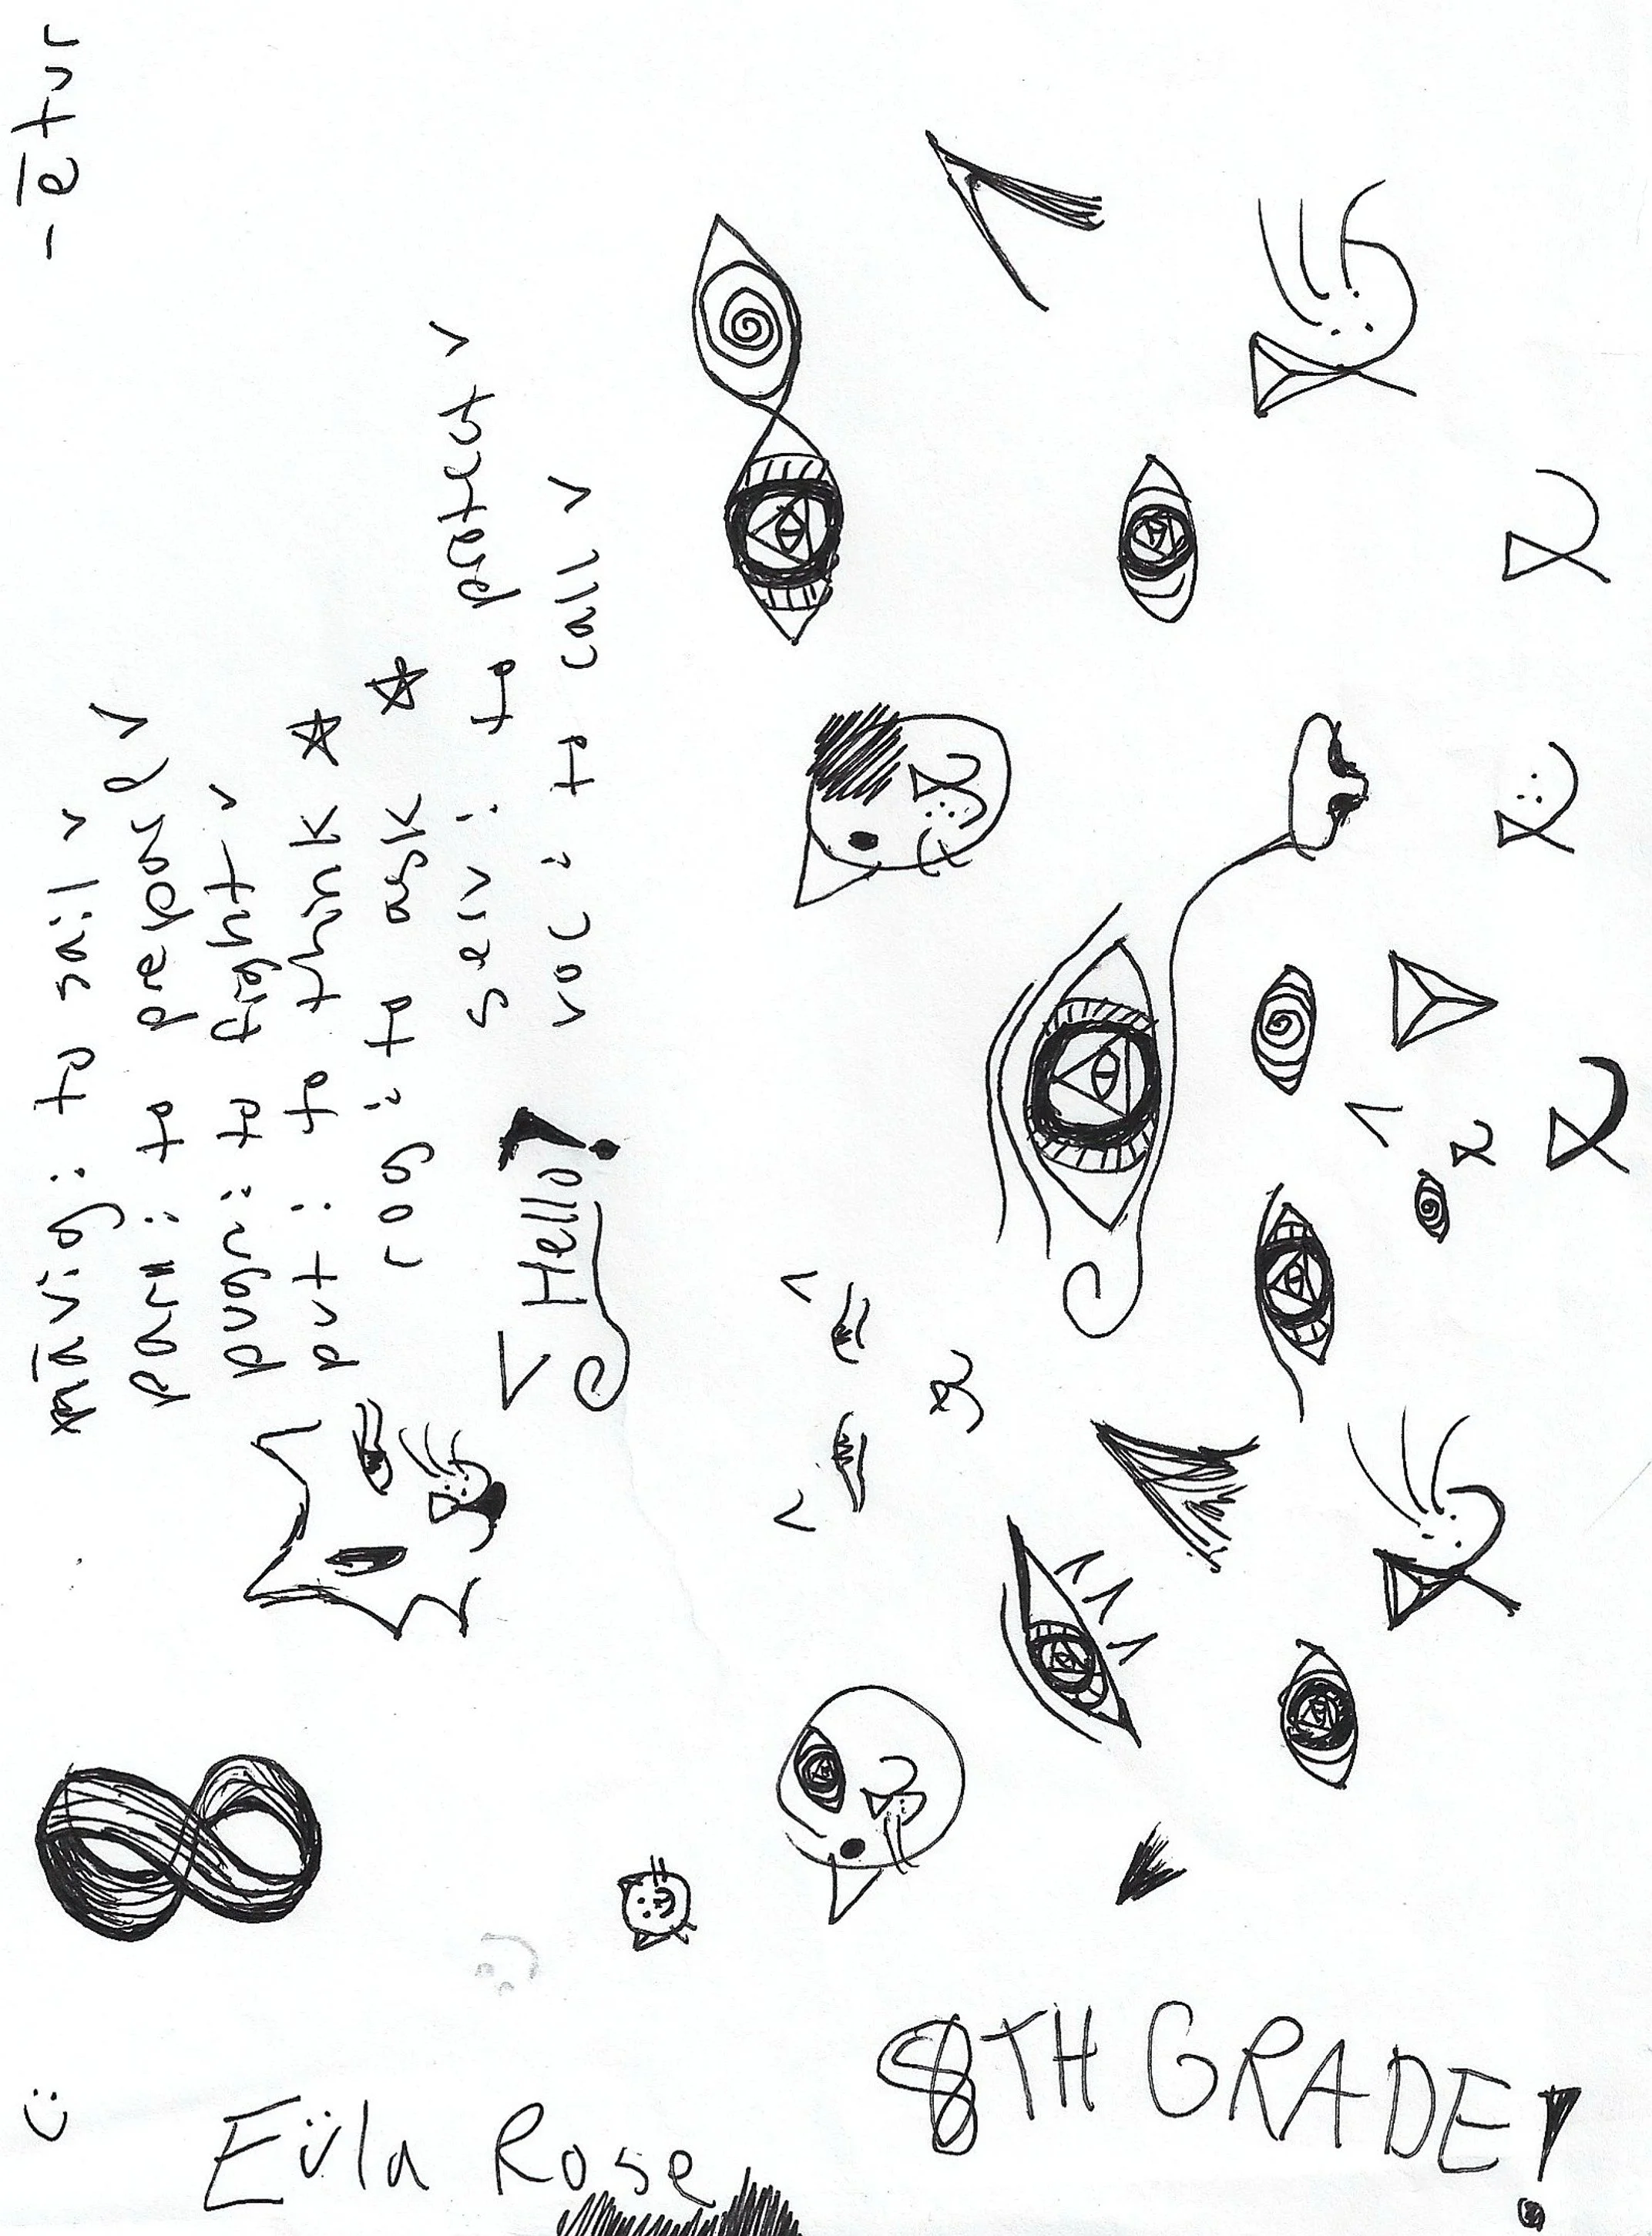 -ētur
nāvig: to sail v
par: to prepare v
pugn: to fight v
put: to think ☆
rog: to ask ☆
serv: to protect v
voc: to call v
Hello!
Eüla Rose
8TH GRADE!